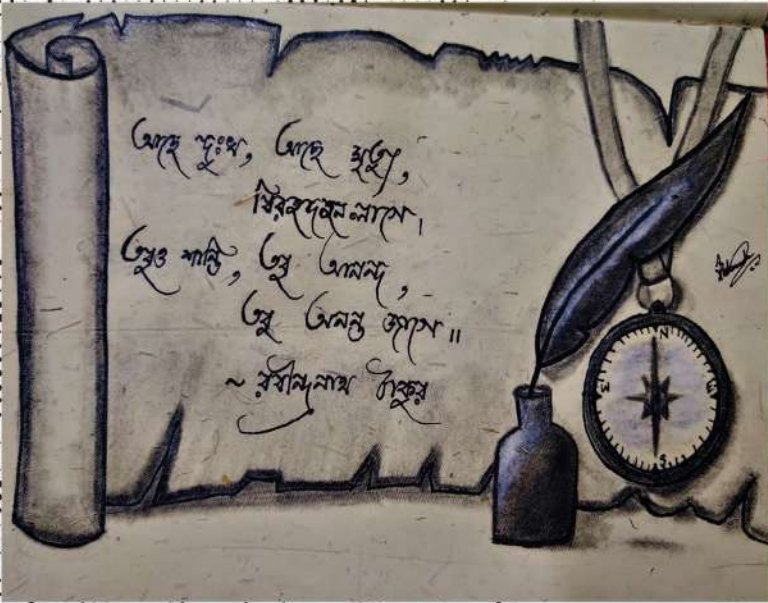 আছে দুঃখ, আছে মৃত্যু,
বিরহদহন লাগে।
তবুও শান্তি, তবু আনন্দ,
তবু অনন্ত জাগে॥
~ রবীন্দ্রনাথ ঠাকুর
N
S